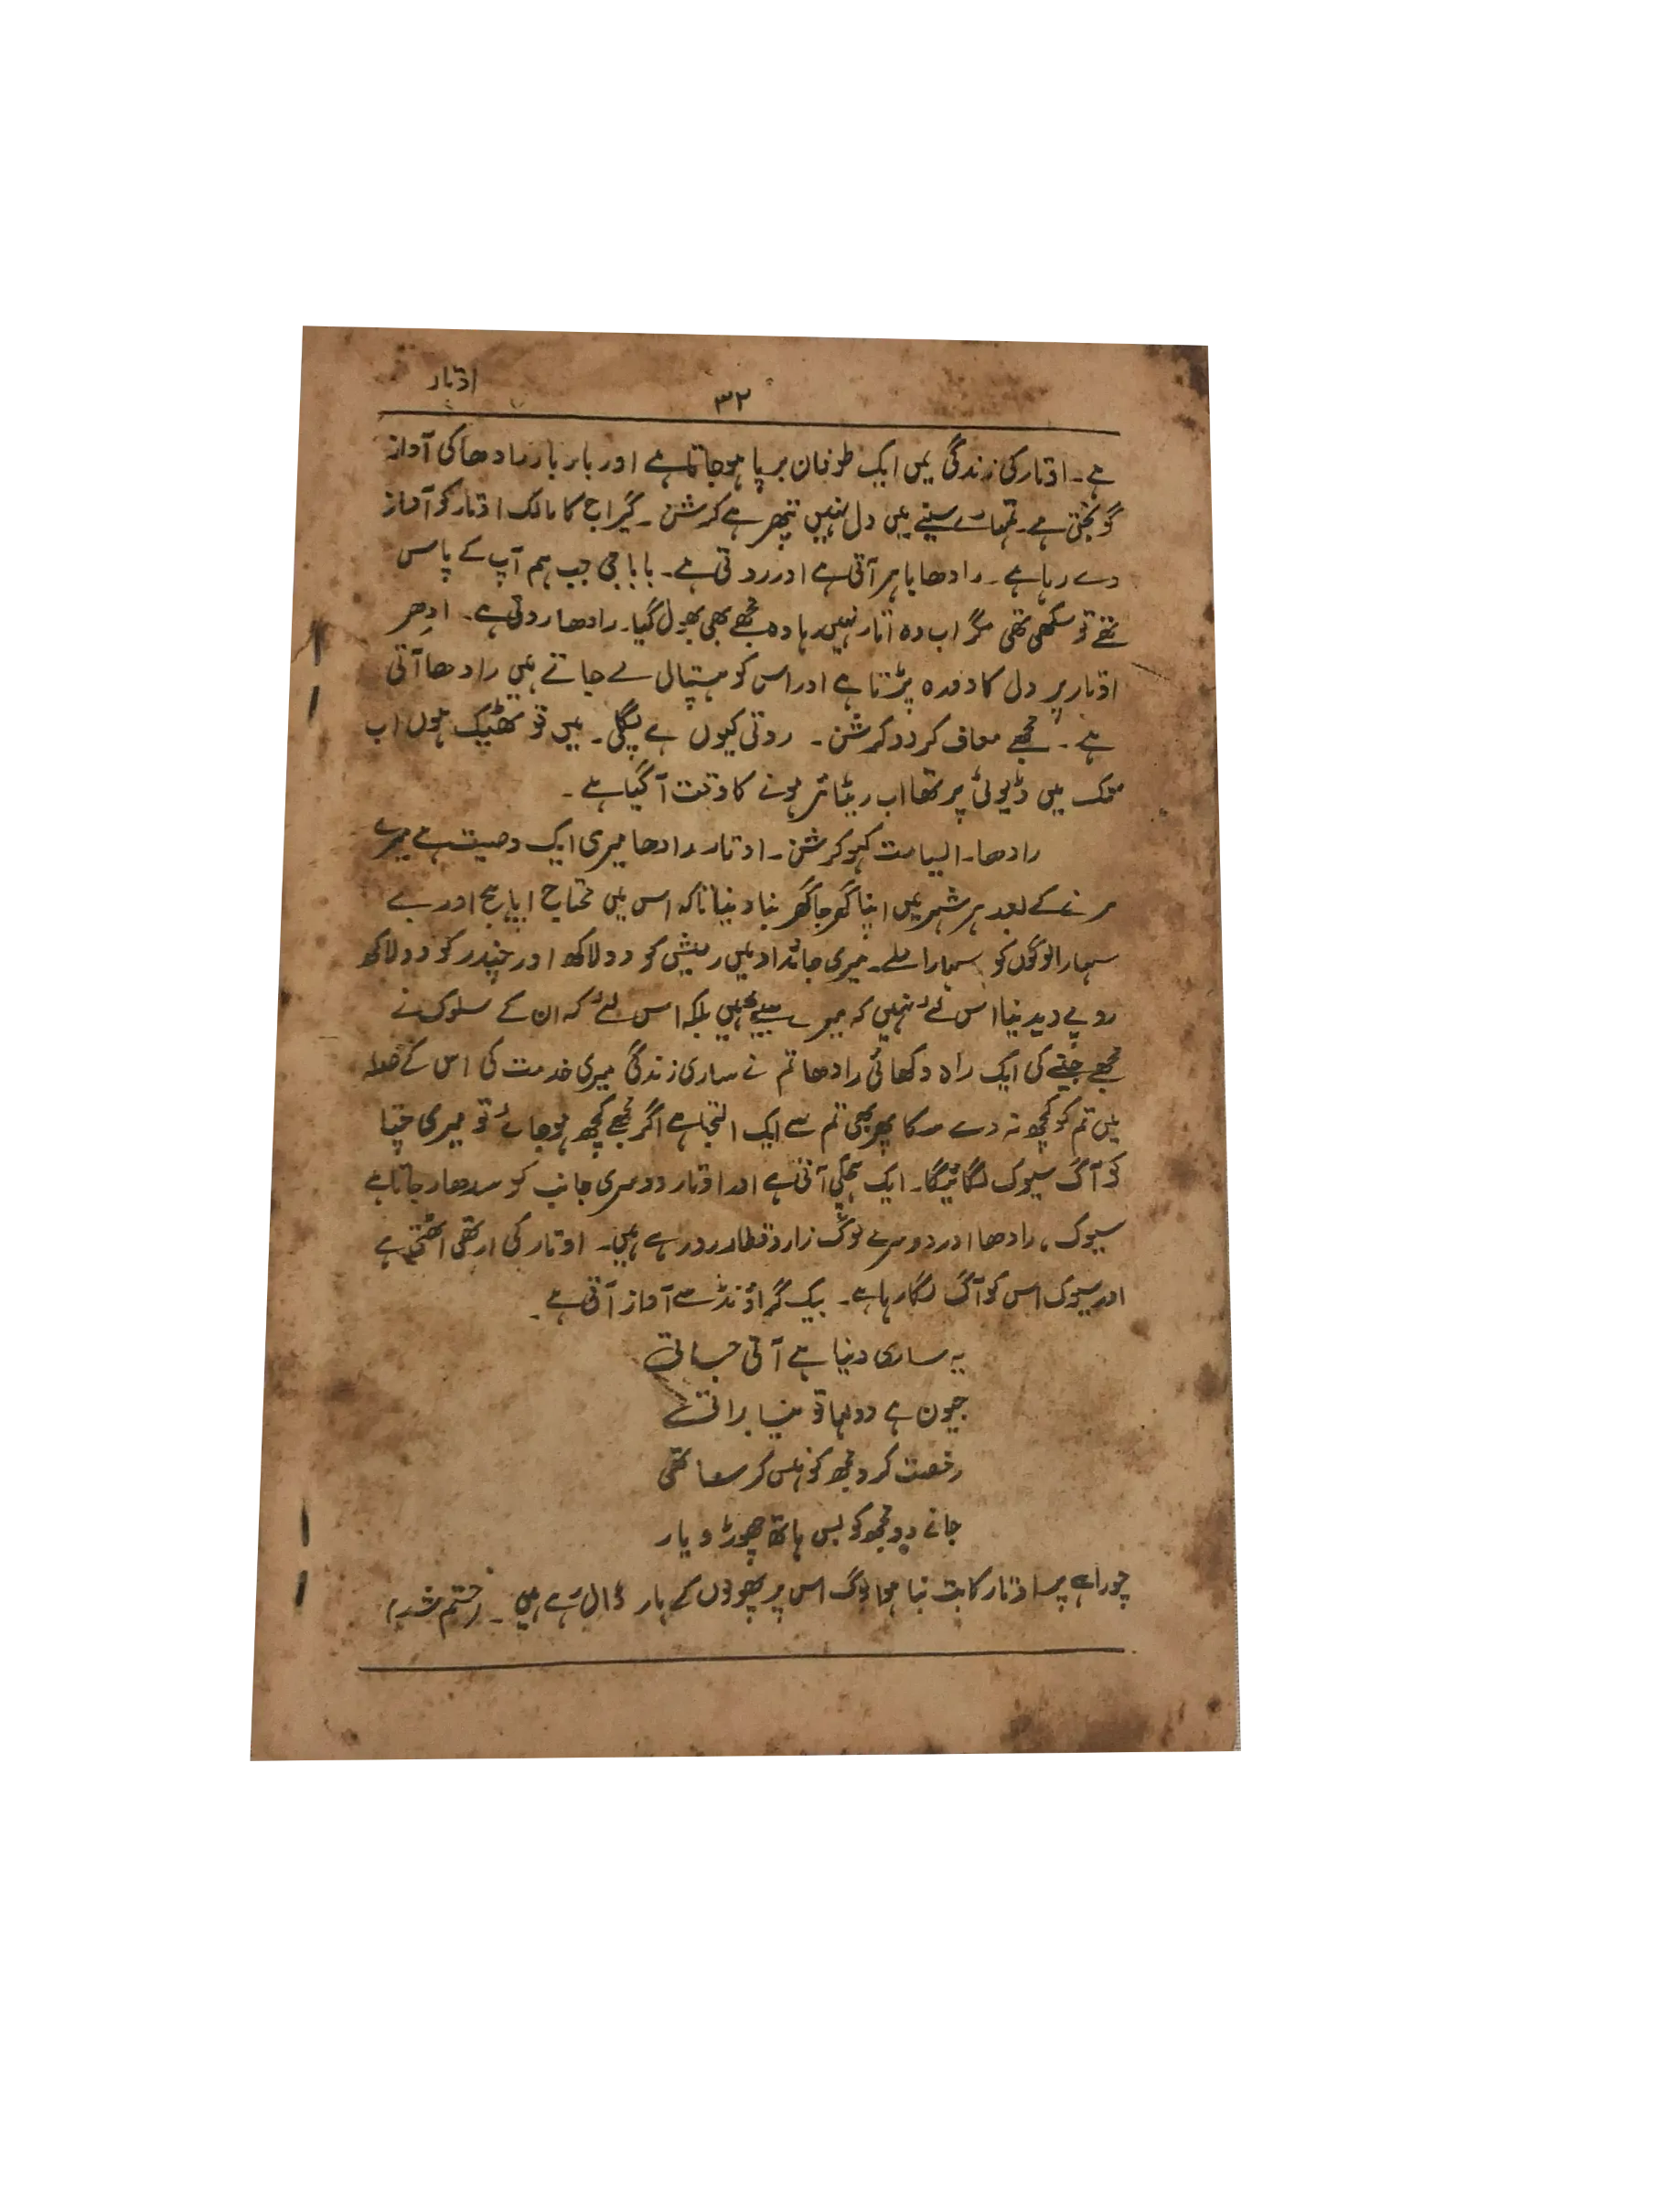 اوتار
۳۲
ہے۔ اوتار کی زندگی میں ایک طوفان برپا ہو جاتا ہے اور بار بار رادھا کی آواز
گونجتی ہے۔ تمہارے سینے میں دل نہیں پتھر ہے کرشن۔ گیراج کا مالک اوتار کو آواز
دے رہا ہے۔ رادھا باہر آتی ہے اور روتی ہے۔ بابا جی جب ہم آپ کے پاس
تھے تو سکھی تھی مگر اب وہ اتار نہیں رہا وہ مجھے بھی بھول گیا۔ رادھا روتی ہے۔ ادھر
اوتار پر دل کا دورہ پڑتا ہے اور اس کو ہسپتال لے جاتے ہیں رادھا آتی
ہے۔ مجھے معاف کر دو کرشن۔ روتی کیوں ہے پگلی۔ میں تو ٹھیک ہوں اب
تک میں ڈیوٹی پر تھا اب ریٹائر ہونے کا وقت آ گیا ہے۔
رادھا۔ ایسا مت کہو کرشن۔ اوتار۔ رادھا میری ایک وصیت ہے میرے
مرنے کے بعد ہر شہر میں اپنا گھر جا گھر بنا دینا تاکہ اس میں محتاج اپاہج اور بے
سہارا لوگوں کو سہارا ملے۔ میری جائداد میں رمیش کو دو لاکھ اور چندر کو دو لاکھ
روپے دیدینا اس لئے نہیں کہ میرے بیٹے ہیں بلکہ اس لئے کہ ان کے سلوک نے
مجھے جینے کی ایک راہ دکھائی رادھا تم نے ساری زندگی میری خدمت کی اس کے صلہ
میں تم کو کچھ نہ دے سکا پھر بھی تم سے ایک التجا ہے اگر مجھے کچھ ہو جائے تو میری چتا
کو آگ سیوک لگائیگا۔ ایک ہچکی آتی ہے اور اوتار دوسری جانب کو سدھار جاتا ہے
سیوک، رادھا اور دوسرے لوگ زار و قطار رو رہے ہیں۔ اوتار کی ارتھی اٹھتی ہے
اور سیوک اس کو آگ لگا رہا ہے۔ بیک گراؤنڈ سے آواز آتی ہے۔
یہ ساری دنیا ہے آتی جاتی
جیون ہے دولہا تو دنیا براتی
رخصت کر دو مجھ کو ہنس کر ساتھی
جانے دو مجھ کو بس ہاتھ چھوڑو یار
چوراہے پر اوتار کا بت بنا ہوا لوگ اس پر پھولوں کے ہار ڈال رہے ہیں۔ (ختم شد)